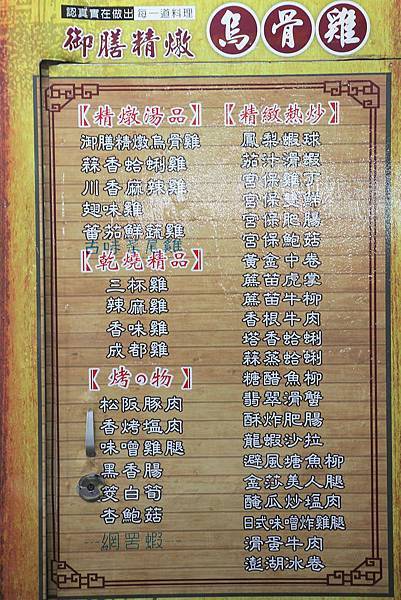 認真實在做出 每一道料理
御膳精燉 烏骨雞
【精燉湯品】
御膳精燉烏骨雞
蒜香蛤蜊雞
川香麻辣雞
翅味雞
蕃茄鮮蔬雞
【乾燒精品】
三杯雞
辣麻雞
香味雞
成都雞
【烤の物】
松阪豚肉
香烤塩肉
味噌雞腿
黑香腸
筊白荀
杏鮑菇
網罟蝦
【精緻熱炒】
鳳梨蝦球
茄汁滑蝦
宮保雞丁
宮保雙鮮
宮保肥腸
宮保鮑菇
黃金中卷
蔗苗虎掌
蔗苗牛柳
香根牛肉
塔香蛤蜊
蒜蒸蛤蜊
糖醋魚柳
翡翠滑蟹
酥炸肥腸
龍蝦沙拉
避風塘魚柳
金莎美人腿
醃瓜炒塩肉
日式味噌炸雞腿
滑蛋牛肉
澎湖冰卷